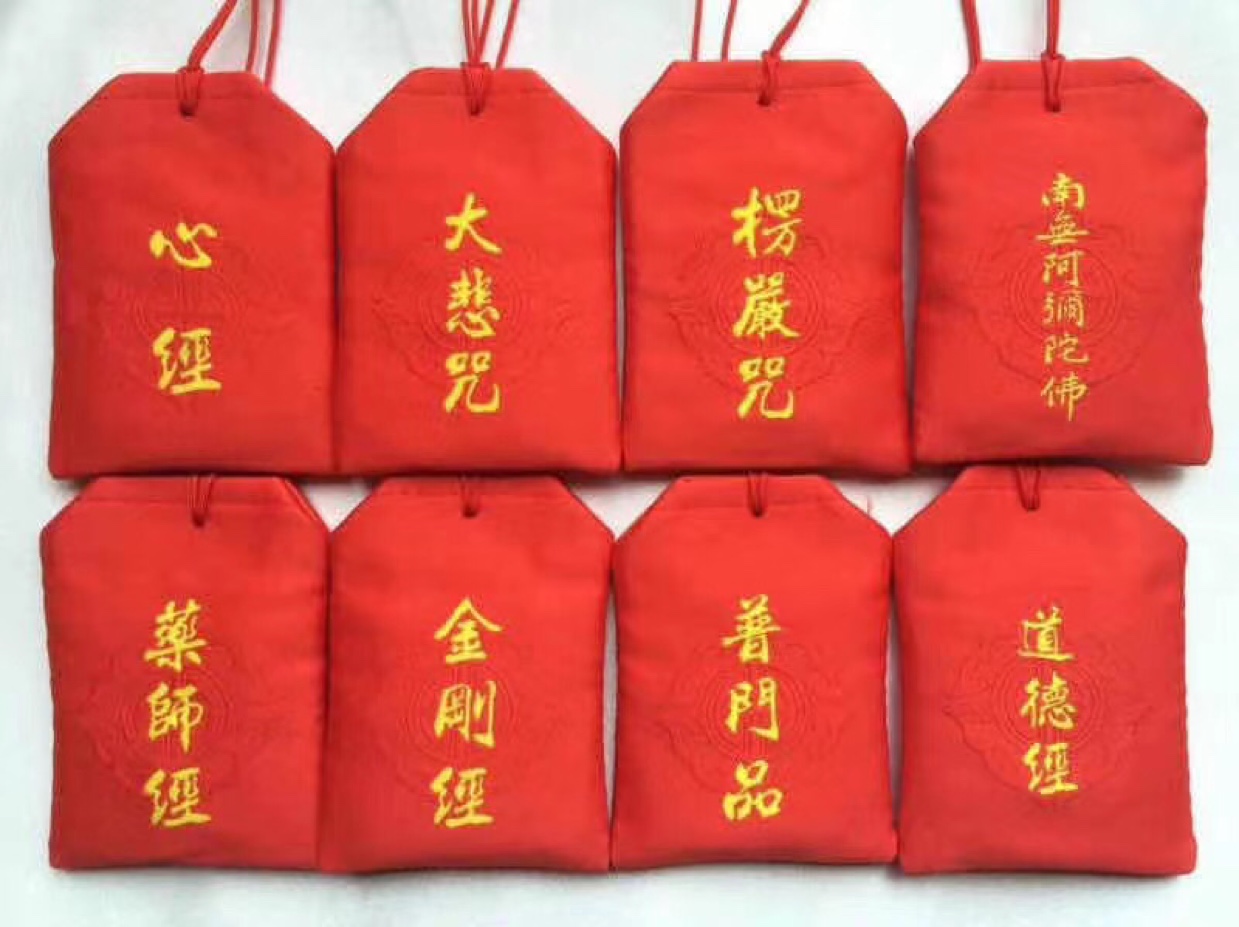 心經
大悲咒
楞嚴咒
南無阿彌陀佛
藥師經
金剛經
普門品
道德經